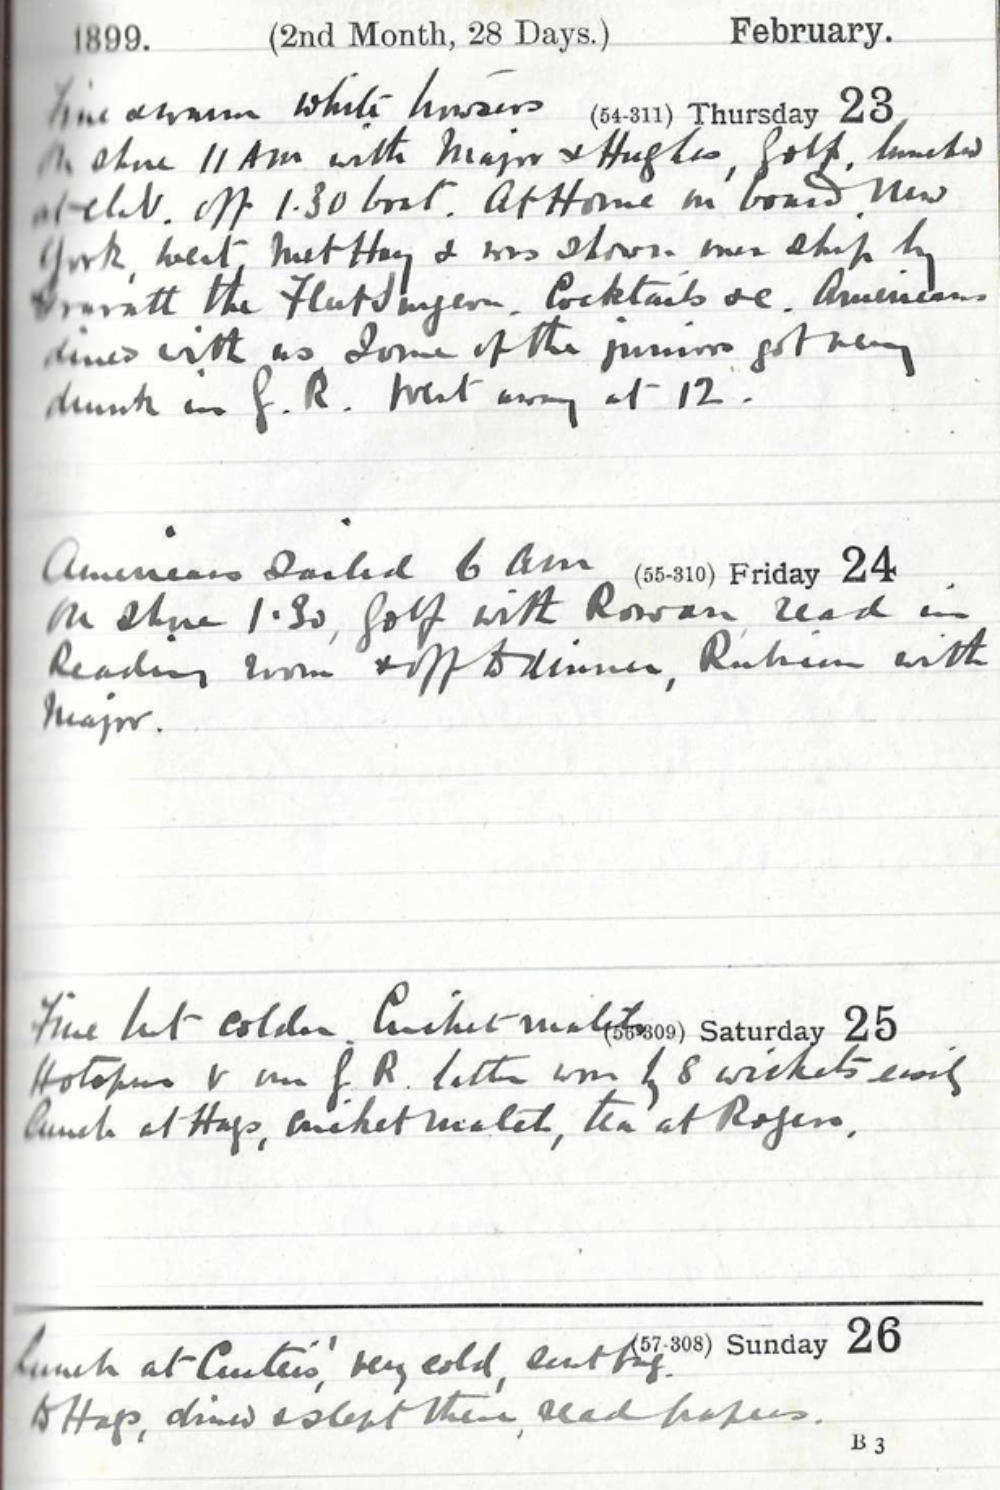 1899. (2nd Month, 28 Days.) February.
Fine & warm white trowsers (54-311) Thursday 23
On shore 11 AM with Major & Hughes, Golf, lunched
at club. off 1.30 boat. At Home on board New
York, went, met Hay & was shown over ship by
the Fleet Surgeon. Cocktails &c. Americans
dined with us Some of the juniors got very
drunk in G. R. Went away at 12.
Americans sailed 6 am (55-310) Friday 24
On shore 1.30, Golf with Rowan, read in
Reading room & off to dinner, with
Major.
Fine but colder. Cricket match (56-309) Saturday 25
v our G. R. latter won by 8 wickets easily
Lunch at Hays, cricket match, tea at Rogers.
(57-308) Sunday 26
Lunch at very cold, sent bag
to Hays, dined & slept there, read papers.
B 3